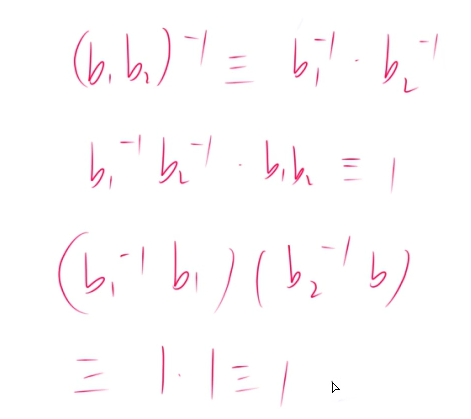 (b₁b₂)⁻¹ ≡ b₁⁻¹ · b₂⁻¹
b₁⁻¹ b₂⁻¹ · b₁b₂ ≡ 1
(b₁⁻¹ b₁)(b₂⁻¹ b)
≡ 1 · 1 ≡ 1